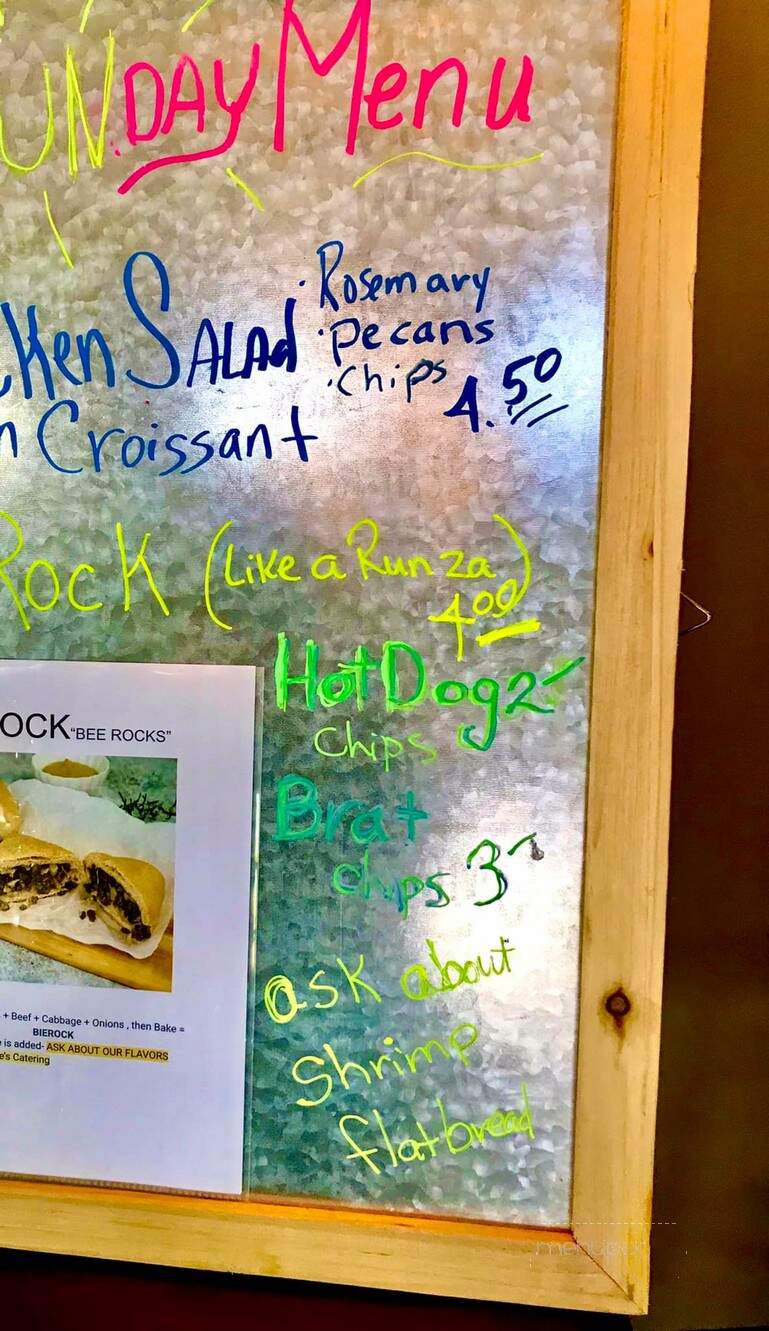 UN.DAY Menu
cken SALAd
· Rosemary
· Pecans
· chips 4.50
n Croissant
Rock (Like a Runza)
4.00
Hot Dog 2-
chips
Brat
chips 3-
OCK "BEE ROCKS"
+ Beef + Cabbage + Onions , then Bake =
BIEROCK
e is added- ASK ABOUT OUR FLAVORS
e's Catering
ask about
Shrimp
flatbread